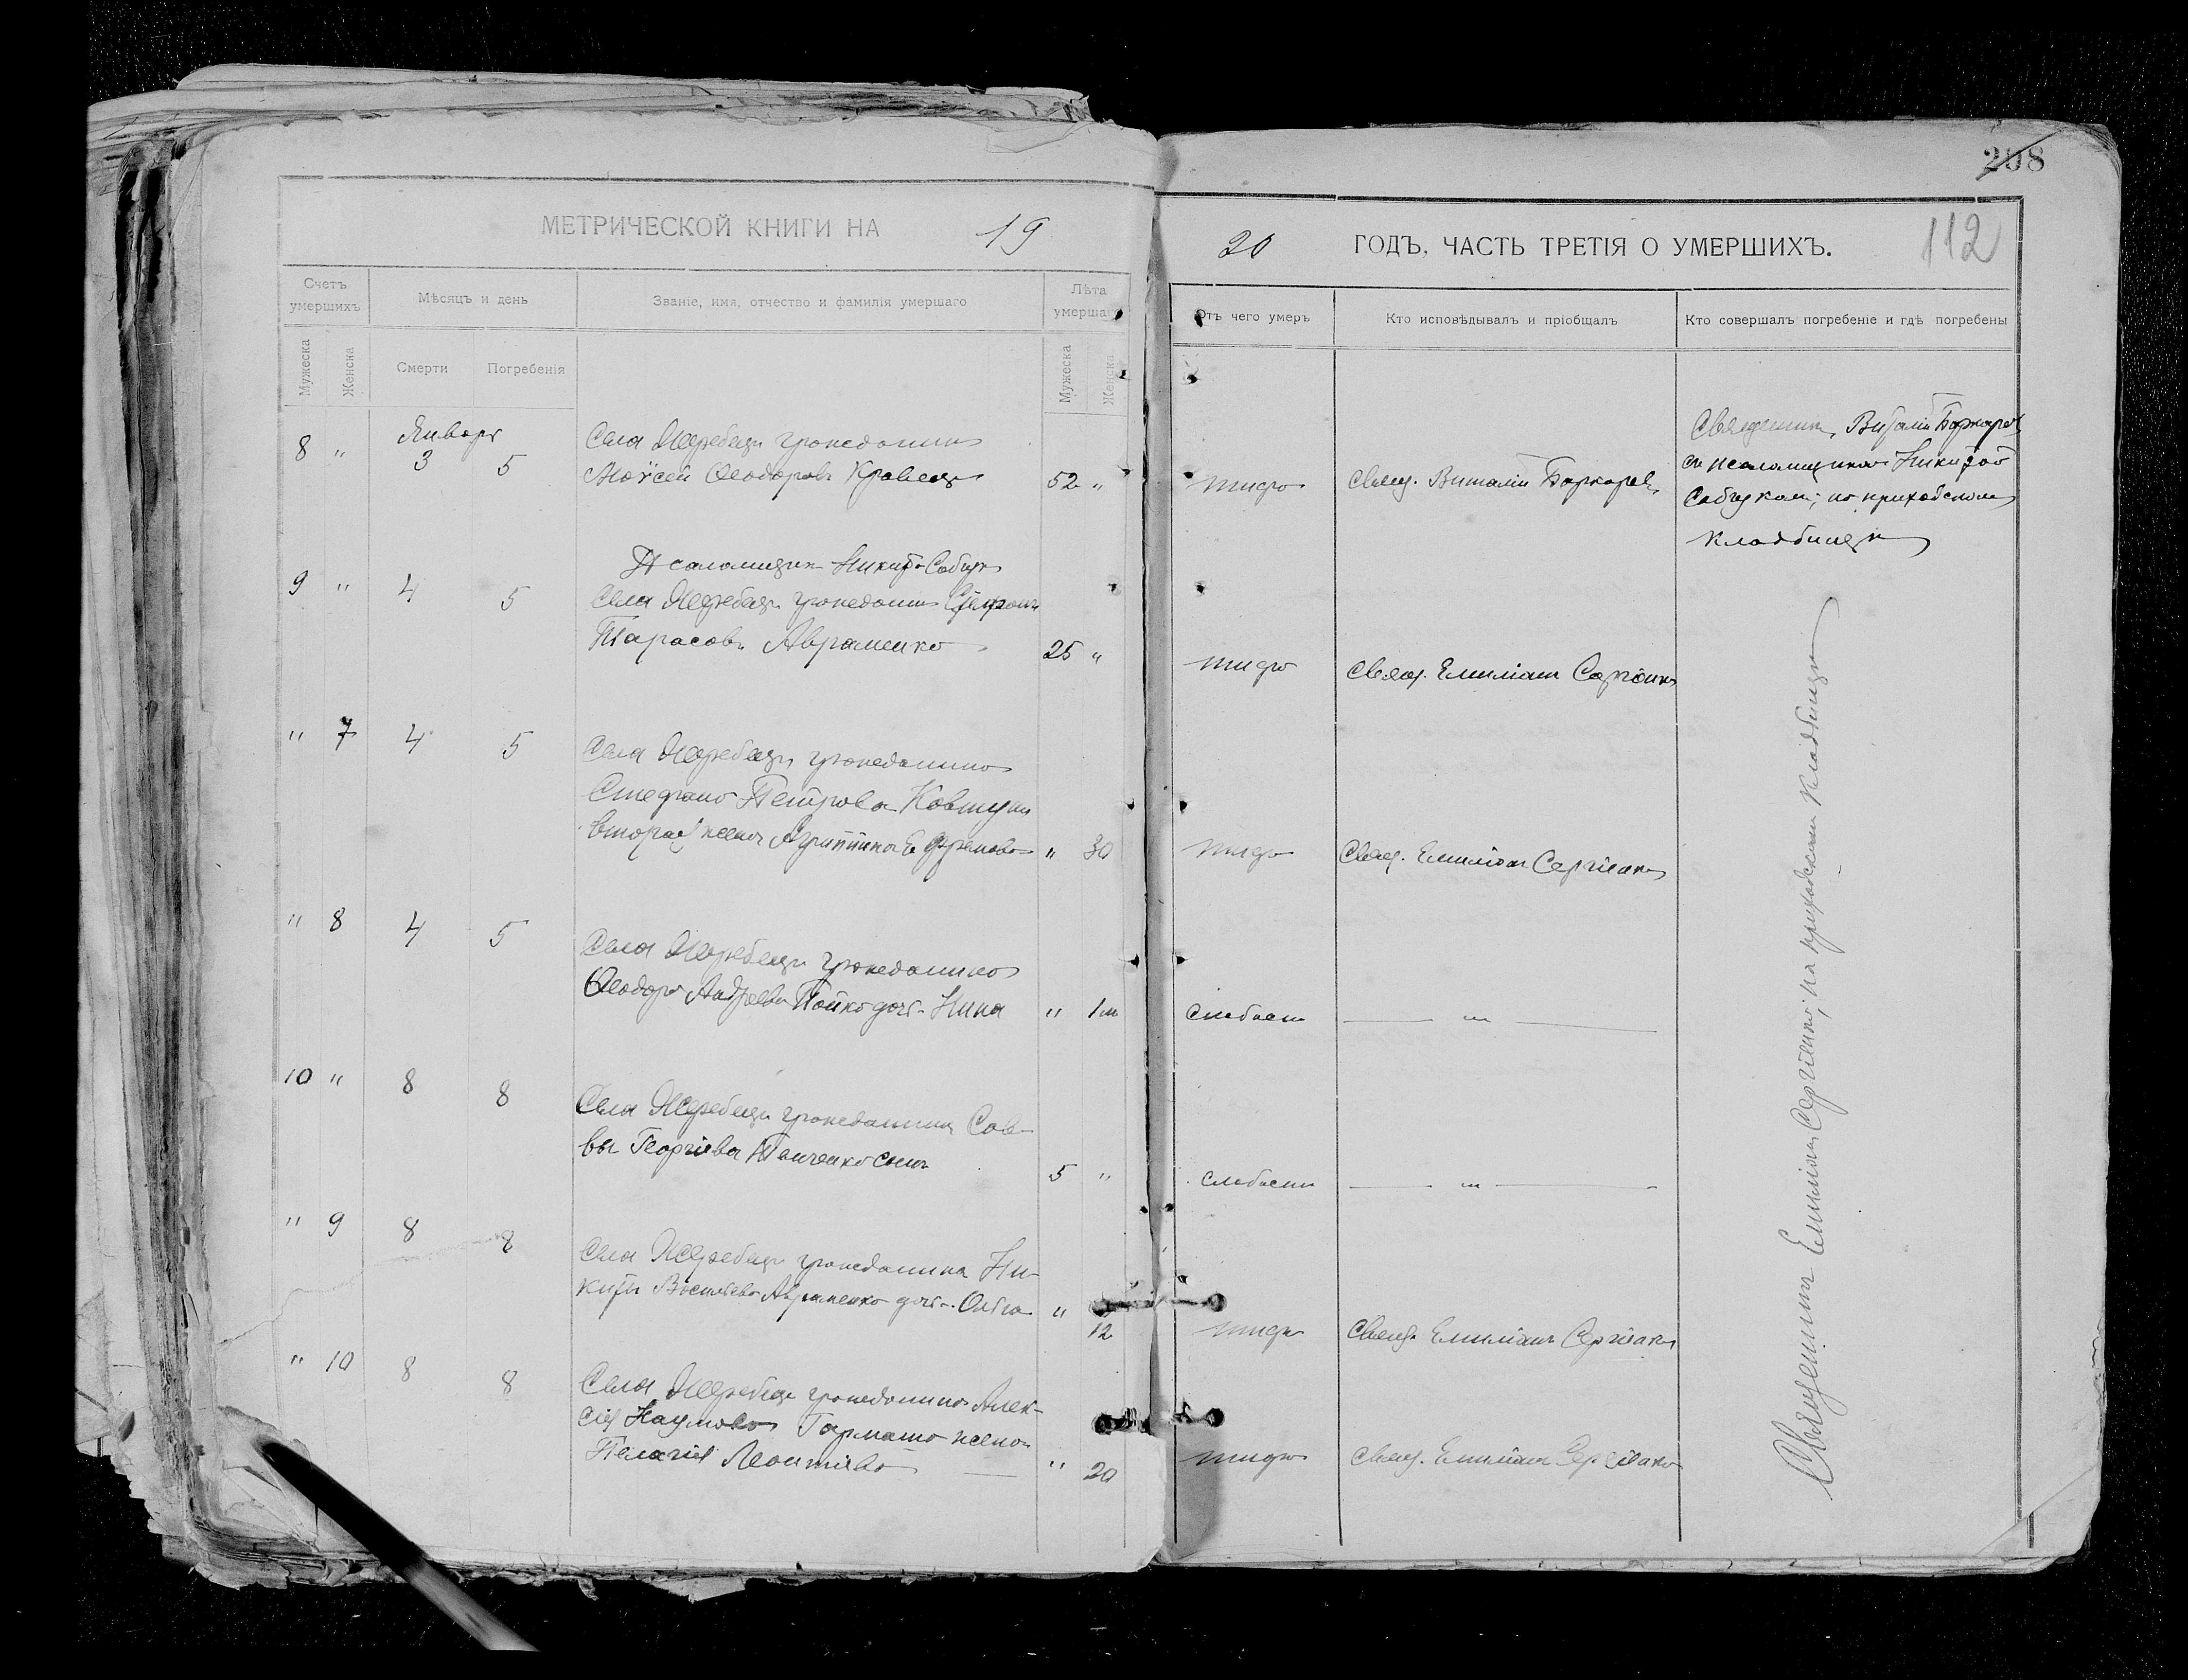 208
112
МЕТРИЧЕСКОЙ КНИГИ НА 19
20 ГОДЪ, ЧАСТЬ ТРЕТІЯ О УМЕРШИХЪ.
Счетъ умершихъ
Мѣсяцъ и день
Званіе, имя, отчество и фамилія умершаго
Лѣта умершаго
Отъ чего умеръ
Кто исповѣдывалъ и пріобщалъ
Кто совершалъ погребеніе и гдѣ погребены
Мужеска
Женска
Смерти
Погребенія
Мужеска
Женска
Января
8 " 3 5
Села Жеребецъ гражданинъ
Моѵсей Ѳеодоровъ Кравецъ 52 "
тифъ
Свящ. Виталій
Священникъ Виталій
съ псаломщикомъ Никитой
на приходскомъ
кладбищѣ
Псаломщикъ Никита
9 " 4 5
Села Жеребецъ гражданинъ Стефанъ
Тарасовъ Авраменко 25 "
тифъ
Свящ. Емиліанъ Сергіенко
" 7 4 5
Села Жеребецъ гражданина
Стефана Петрова Ковтуна
вторая жена Агриппина Ефремова " 30
тифъ
Свящ. Емиліанъ Сергіенко
" 8 4 5
Села Жеребецъ гражданина
Ѳеодора Андреева дочь Нина " 1 м
слабости
— " —
10 " 8 8
Села Жеребецъ гражданина Сав-
вы Георгіева сынъ 5 "
слабости
— " —
" 9 8 8
Села Жеребецъ гражданина Ни-
киты Васильева Авраменко дочь Ольга " 12
тифъ
Свящ. Емиліанъ Сергіенко
" 10 8 8
Села Жеребецъ гражданина Алек-
сія Наумова Гармаша жена
Пелагія Леонтіева " 20
тифъ
Свящ. Емиліанъ Сергіенко
Священникъ Емиліанъ Сергіенко; на приходскомъ кладбищѣ